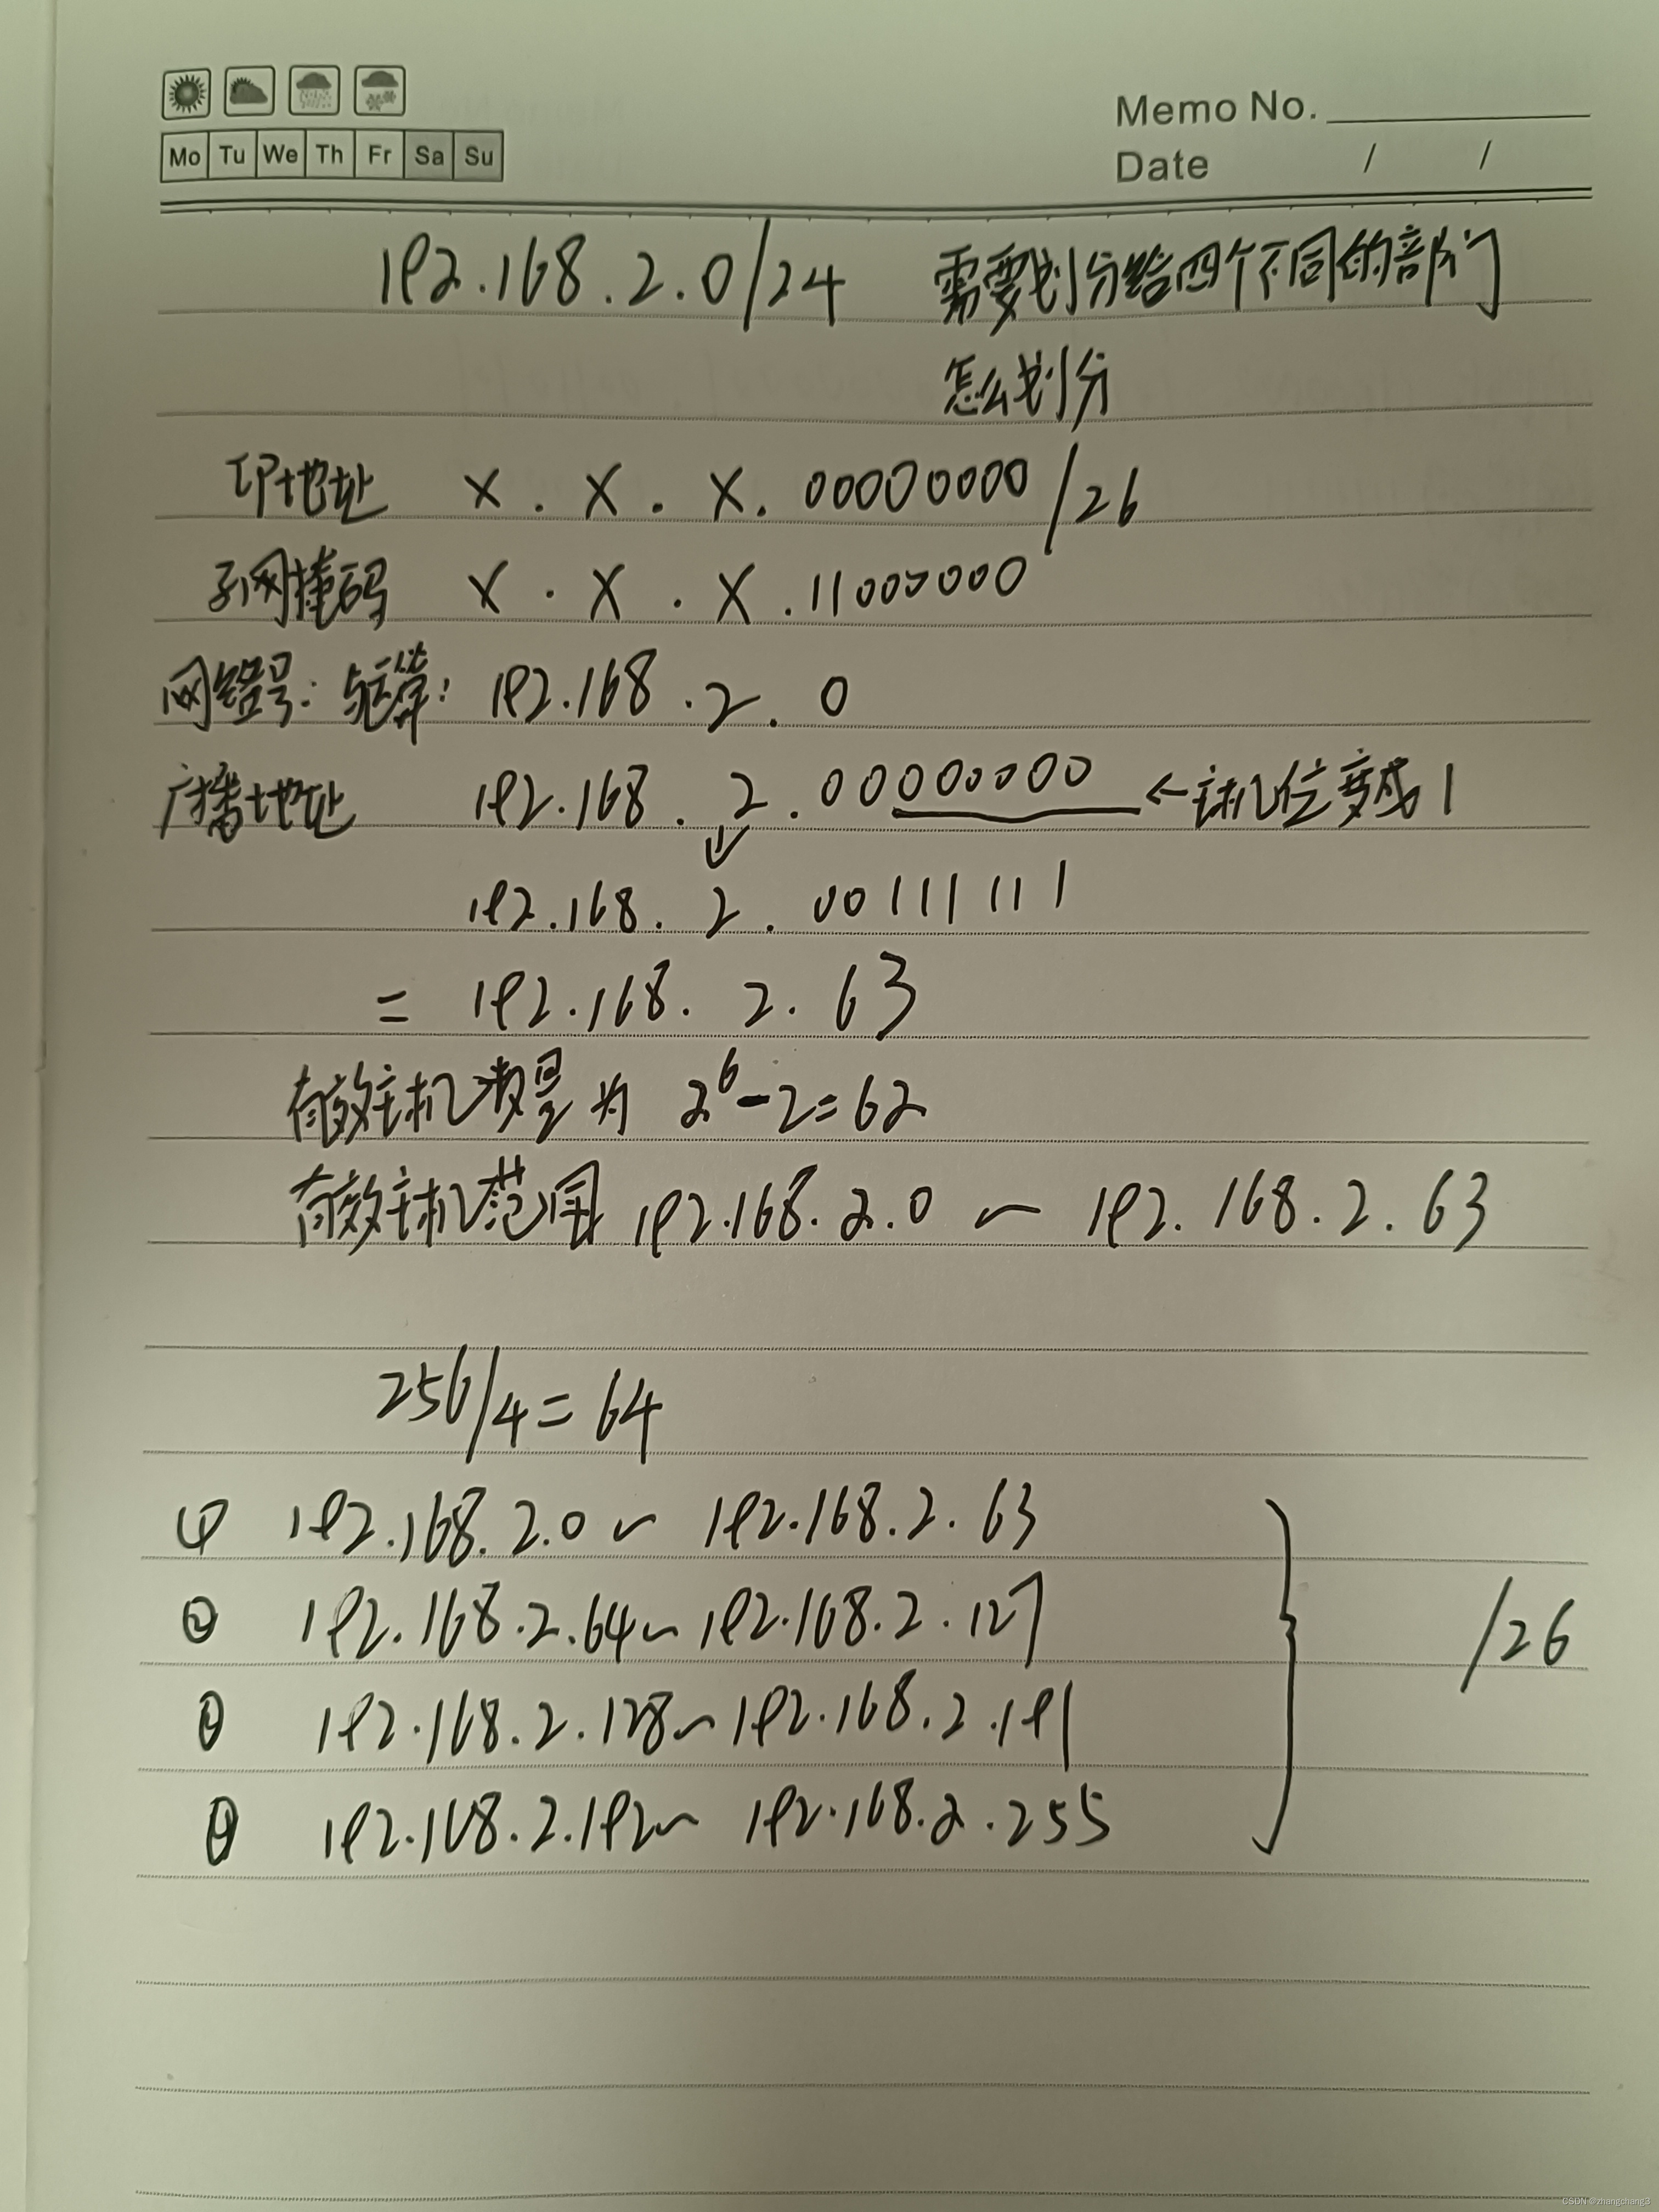 Mo Tu We Th Fr Sa Su
Memo No.
Date / /
192.168.2.0/24 需要划分给四个不同的部门
怎么划分
IP地址 X.X.X.00000000/26
子网掩码 X.X.X.11000000
网络号:与运算: 192.168.2.0
广播地址 192.168.2.00000000 ←主机位变成1
192.168.2.00111111
= 192.168.2.63
有效主机数量为 2⁶-2=62
有效主机范围 192.168.2.0 ~ 192.168.2.63
256/4=64
① 192.168.2.0 ~ 192.168.2.63
② 192.168.2.64 ~ 192.168.2.127
③ 192.168.2.128 ~ 192.168.2.191
④ 192.168.2.192 ~ 192.168.2.255
/26
CSDN @zhangchang3